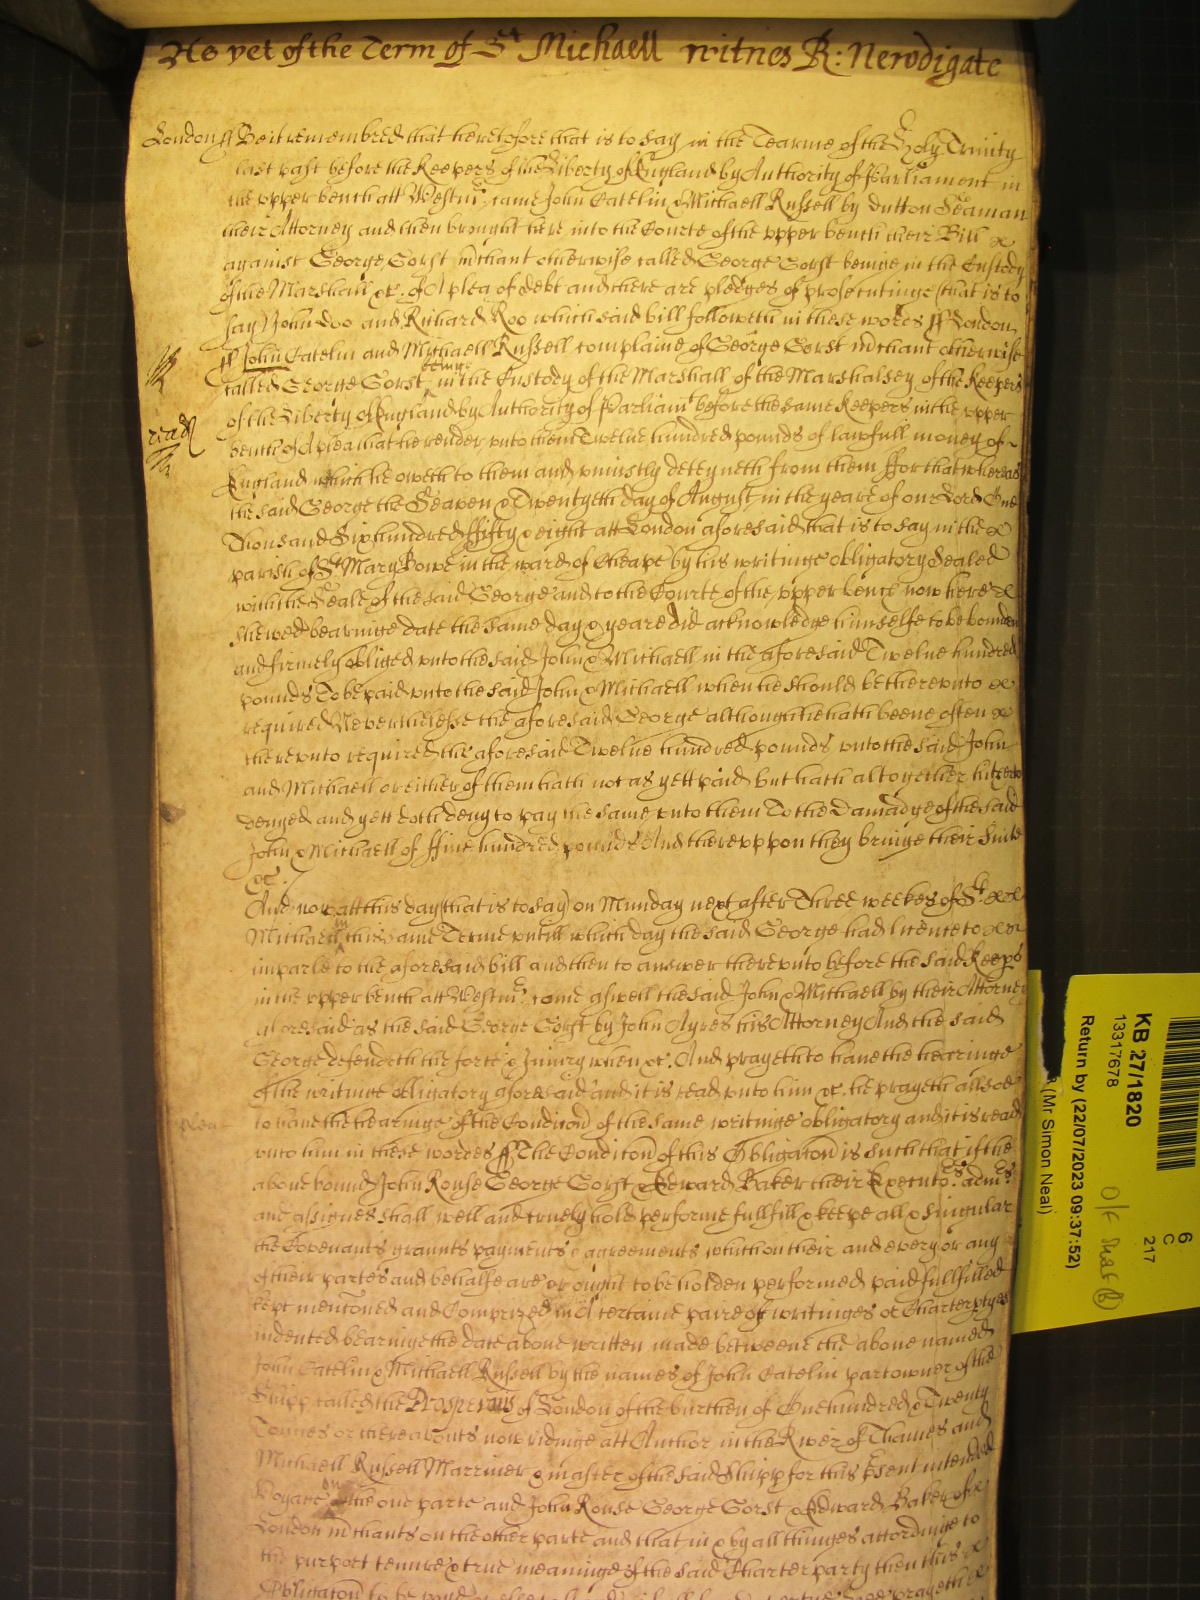 As yet of the Term of St Michaell witnes R: Newdigate
London ff Be it remembred that heretofore that is to say in the Tearme of the Holy Trinity
last past before the Keepers of the Liberty of England by Authority of Parliament in
the vpper bench att Westmr. came John Catelin & Michaell Russell by dutton Seaman
their Attorney and then brought here into the Courte of the vpper bench their Bill &
against George Gorst mchant otherwise called George Gorst beinge in the Custody
of the Marshall &c. of A plea of debt and there are pledges of prosecutinge (that is to
say) John Doo and Richard Roo which said bill followeth in these words ff London
ff John Catelin and Michaell Russell complaine of George Gorst mchant otherwise
called George Gorst beinge in the Custody of the Marshall of the Marshalsey of the Keepers
of the Liberty of England by Authority of Parliamt before the same Keepers in the vpper
read
bench of A plea that he render vnto them Twelue hundred pounds of lawfull money of
England which he oweth to them and vniustly deteyneth from them ffor that whereas
the said George the Seaven & Twentyeth day of August in the yeare of our Lord One
Thousand Six hundred ffifty & eight att London aforesaid that is to say in the &
parish of St Mary Bowe in the ward of Cheape by his writinge obligatory Sealed
with the Seale of the said George and to the Courte of the vpper bench now here &
shewed bearinge date the same day & yeare did acknowledge himselfe to be bounden
and firmely obliged vnto the said John & Michaell in the aforesaid Twelue hundred
pounds To be paid vnto the said John & Michaell when he should be therevnto &
required Neverthelesse the aforesaid George although he hath beene often &
therevnto required the aforesaid Twelue hundred pounds vnto the said John
and Michaell or either of them hath not as yett paid but hath altogether hitherto
denyed and yett doth deny to pay the same vnto them To the Damadge of the said
John & Michaell of ffiue hundred pounds And therevppon they bringe their Suite
&c.
And now att this day (that is to say) on Munday next after Three weekes of St &
Michaell in this same Terme vntill which day the said George had licence to &
imparle to the aforesaid bill and then to answer therevnto before the said Keeps
in the vpper bench att Westmr. come aswell the said John & Michaell by their Attorney
aforesaid as the said George Gorst by John Ayres his Attorney And the said
George defendeth the force & Iniury when &c. And prayeth to haue the hearinge
of the writinge obligatory aforesaid and it is read vnto him &c. he prayeth allsoe
plea
to haue the hearinge of the Condicon of the same writinge obligatory and it is read
vnto him in these wordes ff The Condicon of this Obligaton is such that if the
above bound John Rouse George Gorst & Edward Baker their Executors. admrs.
and assignes shall well and truely hold performe fullfill & keepe all & singular
the Covenants graunts payments & agreements which on their and every or any
of their partes and behalfe are or ought to be holden performed paid fullfilled
kept menconed and Comprized in A certaine paire of writinges or Charterptyes
indented bearinge the date above written made betweene the above named
John Catelin & Michaell Russell by the names of John Catelin part owner of the
Shipp called the Prosperous of London of the burthen of One hundred & Twenty
Tonnes or thereabouts now ridinge att Anchor in the River of Thames and
Michaell Russell Marriner & master of the said Shipp for this psent intended
voyage on the one parte and John Rouse George Gorst & Edward Baker of &
London mchants on the other parte and that in & by all thinges accordinge to
the purport tenure & true meaninge of the said Charterparty then this &
Obligaton to be voyd
KB 27/1820
13317678
Return by (22/07/2023 09:37:52)
(Mr Simon Neal)
6
C
217